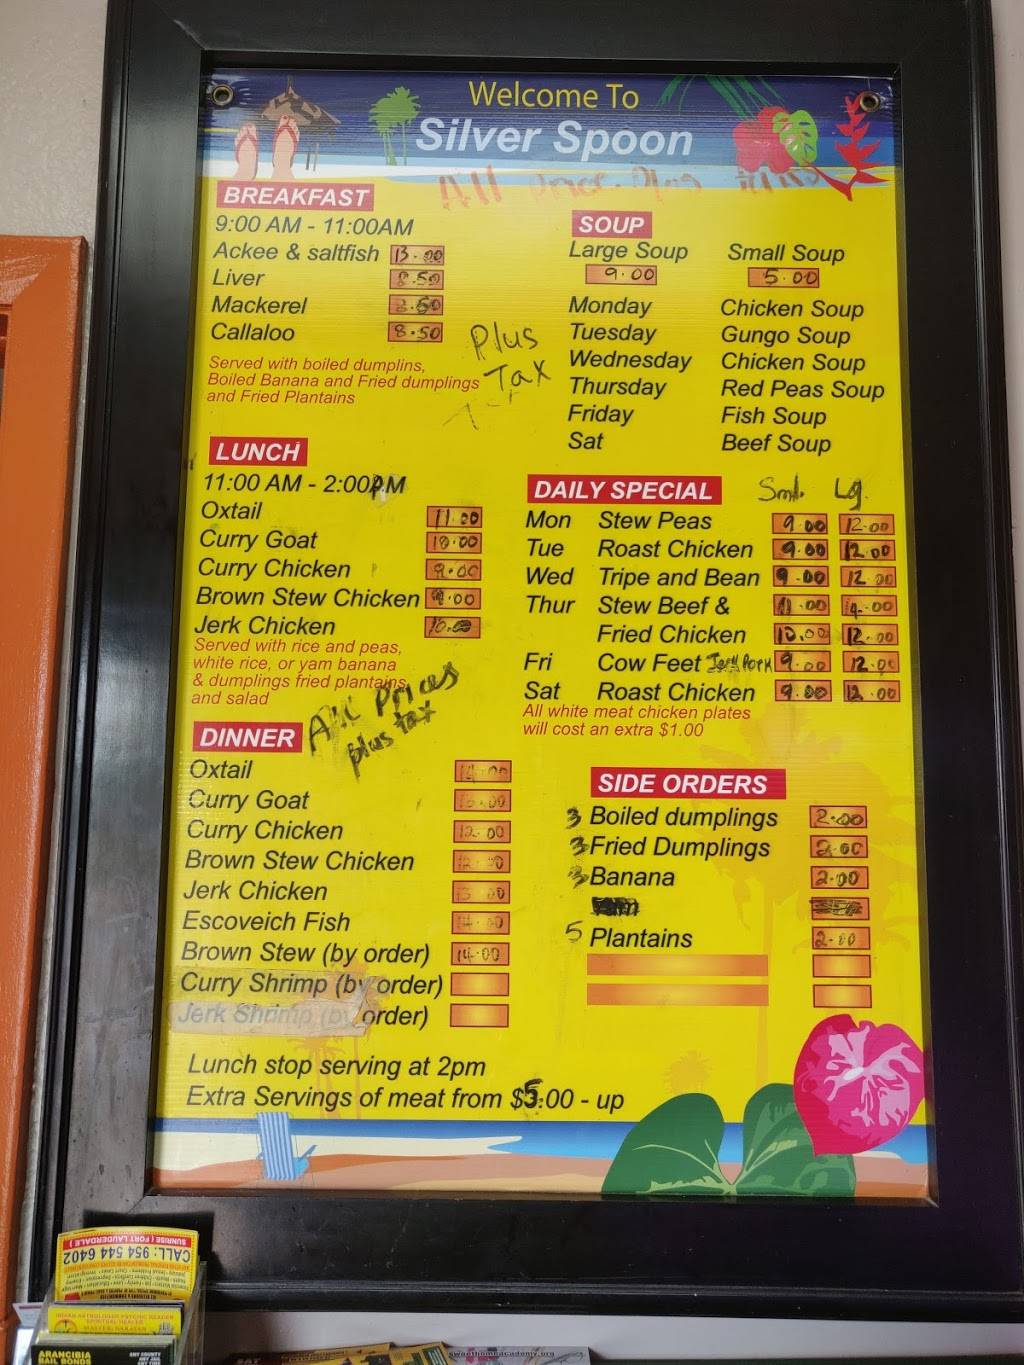 Welcome To
Silver Spoon
All Prices Plus
BREAKFAST
9:00 AM - 11:00AM
Ackee & saltfish 13.00
Liver 8.50
Mackerel 8.50
Callaloo 8.50
Served with boiled dumplins,
Boiled Banana and Fried dumplings
and Fried Plantains
Plus
Tax
SOUP
Large Soup Small Soup
9.00 5.00
Monday Chicken Soup
Tuesday Gungo Soup
Wednesday Chicken Soup
Thursday Red Peas Soup
Friday Fish Soup
Sat Beef Soup
LUNCH
11:00 AM - 2:00PM
Oxtail 11.00
Curry Goat 10.00
Curry Chicken 9.00
Brown Stew Chicken 9.00
Jerk Chicken 10.00
Served with rice and peas,
white rice, or yam banana
& dumplings fried plantains
and salad
All Prices
plus tax
DAILY SPECIAL Sml. Lg.
Mon Stew Peas 9.00 12.00
Tue Roast Chicken 9.00 12.00
Wed Tripe and Bean 9.00 12.00
Thur Stew Beef & 11.00
Fried Chicken 10.00 12.00
Fri Cow Feet Jerk Pork 9.00 12.00
Sat Roast Chicken 9.00 12.00
All white meat chicken plates
will cost an extra $1.00
DINNER
Oxtail
Curry Goat
Curry Chicken 12.00
Brown Stew Chicken 12.00
Jerk Chicken 13.00
Escoveich Fish 14.00
Brown Stew (by order) 14.00
Curry Shrimp (by order)
Jerk Shrimp (by order)
SIDE ORDERS
3 Boiled dumplings 2.00
3 Fried Dumplings 2.00
3 Banana 2.00
5 Plantains 2.00
Lunch stop serving at 2pm
Extra Servings of meat from $5.00 - up
SUNRISE ( FORT LAUDERDALE )
CALL: 954 544 6402
INDIAN ASTROLOGER PSYCHIC READER
SPIRITUAL HEALER
ARANCIBIA
BAIL BONDS
ANY COUNTY
ANY JAIL
ANY TIME